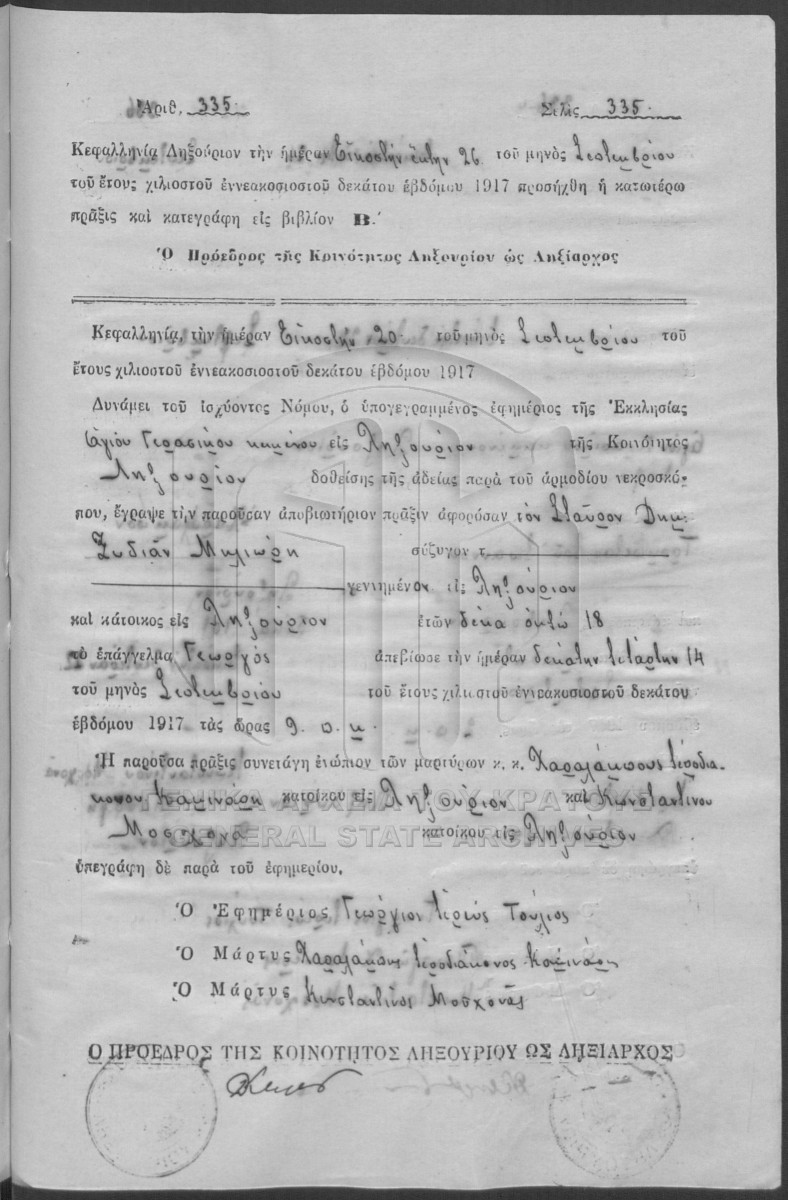 Ἀριθ. 335 Σελὶς 335.
Κεφαλληνία Ληξούριον τὴν ἡμέραν Εἰκοστὴν ἕκτην 26 τοῦ μηνὸς Σεπτεμβρίου
τοῦ ἔτους χιλιοστοῦ ἐννεακοσιοστοῦ δεκάτου ἑβδόμου 1917 προσήχθη ἡ κατωτέρω
πρᾶξις καὶ κατεγράφη εἰς βιβλίον Β.΄
Ὁ Πρόεδρος τῆς Κοινότητος Ληξουρίου ὡς Ληξίαρχος
Κεφαλληνία, τὴν ἡμέραν Εἰκοστὴν 20 τοῦ μηνὸς Σεπτεμβρίου τοῦ
ἔτους χιλιοστοῦ ἐννεακοσιοστοῦ δεκάτου ἑβδόμου 1917
Δυνάμει τοῦ ἰσχύοντος Νόμου, ὁ ὑπογεγραμμένος ἐφημέριος τῆς Ἐκκλησίας
Ἁγίου Γερασίμου κειμένου εἰς Ληξούριον τῆς Κοινότητος
Ληξουρίου δοθείσης τῆς ἀδείας παρὰ τοῦ ἁρμοδίου νεκροσκό-
που, ἔγραψε τὴν παροῦσαν ἀποβιωτήριον πρᾶξιν ἀφορῶσαν τὸν Σταῦρον Δημ.
σύζυγον τ
γεννημένον εἰς Ληξούριον
καὶ κάτοικος εἰς Ληξούριον ἐτῶν δέκα ὀκτὼ 18
τὸ ἐπάγγελμα Γεωργὸς ἀπεβίωσε τὴν ἡμέραν δεκάτην τετάρτην 14
τοῦ μηνὸς Σεπτεμβρίου τοῦ ἔτους χιλιοστοῦ ἐννεακοσιοστοῦ δεκάτου
ἑβδόμου 1917 τὰς ὥρας 9
Ἡ παροῦσα πρᾶξις συνετάγη ἐνώπιον τῶν μαρτύρων κ. κ. Χαραλάμπους ἱεροδια-
κόνου Καμινάρη κατοίκου εἰς Ληξούριον καὶ Κωνσταντίνου
Μοσχονᾶ κατοίκου εἰς Ληξούριον
ὑπεγράφη δὲ παρὰ τοῦ ἐφημερίου.
Ὁ Ἐφημέριος Γεώργιος ἱερεὺς Τούλιος
Ὁ Μάρτυς Χαραλάμπης ἱεροδιάκονος Καμινάρης
Ὁ Μάρτυς Κωνσταντῖνος Μοσχονᾶς
Ο ΠΡΟΕΔΡΟΣ ΤΗΣ ΚΟΙΝΟΤΗΤΟΣ ΛΗΞΟΥΡΙΟΥ ΩΣ ΛΗΞΙΑΡΧΟΣ
ΓΕΝΙΚΑ ΑΡΧΕΙΑ ΤΟΥ ΚΡΑΤΟΥΣ
GENERAL STATE ARCHIVES